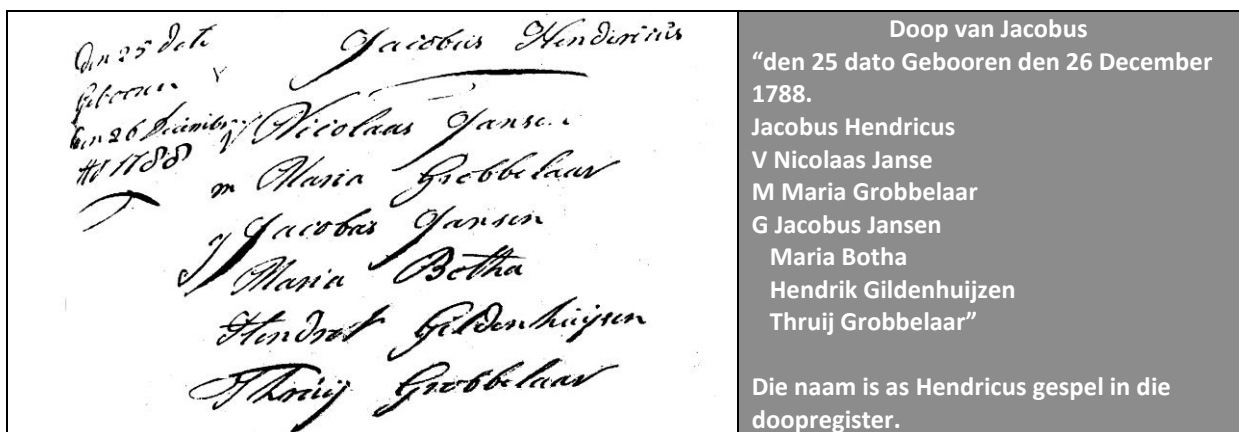 den 25 dato
Gebooren
den 26 Decembr
A° 1788
Jacobus Hendericus
V Nicolaas Jansen
m Maria Grobbelaar
g Jacobus Jansen
Maria Botha
Hendrik Gildenhuijsen
Thruij Grobbelaar
Doop van Jacobus
“den 25 dato Gebooren den 26 December
1788.
Jacobus Hendricus
V Nicolaas Janse
M Maria Grobbelaar
G Jacobus Jansen
Maria Botha
Hendrik Gildenhuijzen
Thruij Grobbelaar”
Die naam is as Hendricus gespel in die
doopregister.